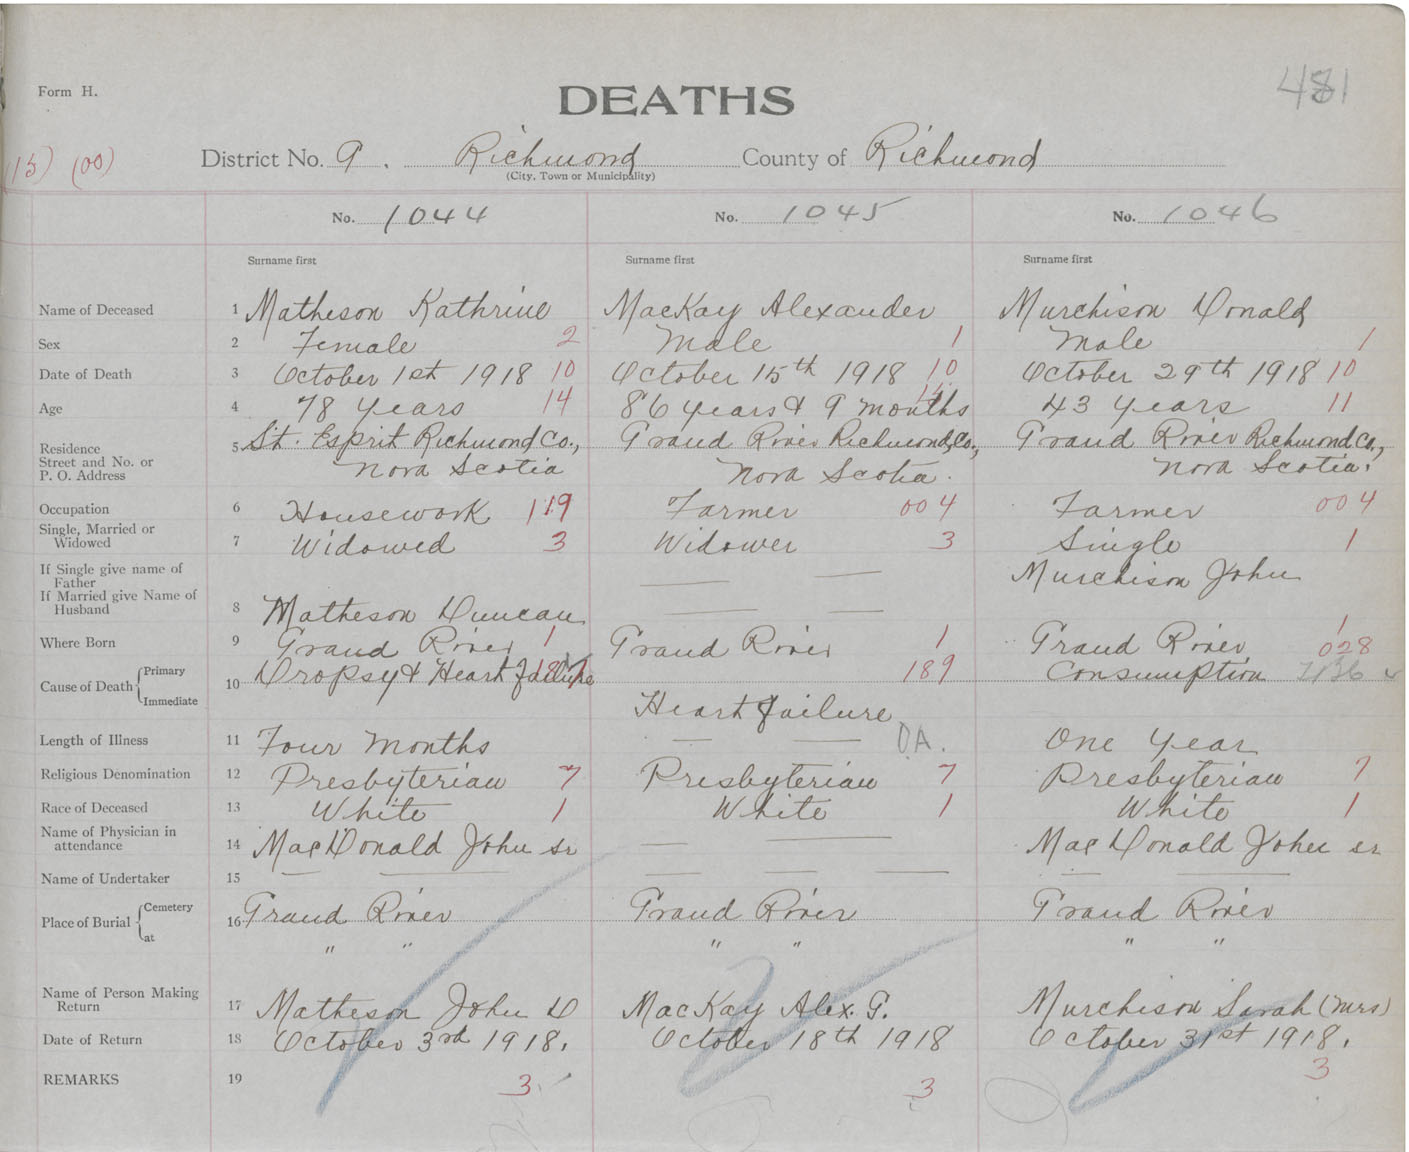 481
Form H.
DEATHS
(15) (00)
District No. 9. Richmond County of Richmond
(City, Town or Municipality)
No. 1044 No. 1045 No. 1046
Surname first Surname first Surname first
Name of Deceased 1 Matheson Kathrine MacKay Alexander Murchison Donald
Sex 2 Female 2 Male 1 Male 1
Date of Death 3 October 1st 1918 10 October 15th 1918 10 October 29th 1918 10
Age 4 78 years 14 86 years & 9 months 43 years 11
Residence 5 St. Esprit Richmond Co., Grand River Richmond Co., Grand River Richmond Co.,
Street and No. or
P. O. Address Nova Scotia Nova Scotia. Nova Scotia.
Occupation 6 Housework 119 Farmer 004 Farmer 004
Single, Married or
Widowed 7 Widowed 3 Widower 3 Single 1
If Single give name of
Father Murchison John
If Married give Name of
Husband 8 Matheson Duncan
Where Born 9 Grand River 1 Grand River 1 Grand River 1
028
Cause of Death Primary 10 Dropsy & Heart failure 189 Consumption
Immediate Heart failure
Length of Illness 11 Four months DA. One year
Religious Denomination 12 Presbyterian 7 Presbyterian 7 Presbyterian 7
Race of Deceased 13 White 1 White 1 White 1
Name of Physician in
attendance 14 MacDonald John sr MacDonald John sr
Name of Undertaker 15
Place of Burial Cemetery 16 Grand River Grand River Grand River
at " " " " " "
Name of Person Making
Return 17 Matheson John D MacKay Alex. G. Murchison Sarah (Mrs)
Date of Return 18 October 3rd 1918. October 18th 1918 October 31st 1918.
REMARKS 19 3 3 3